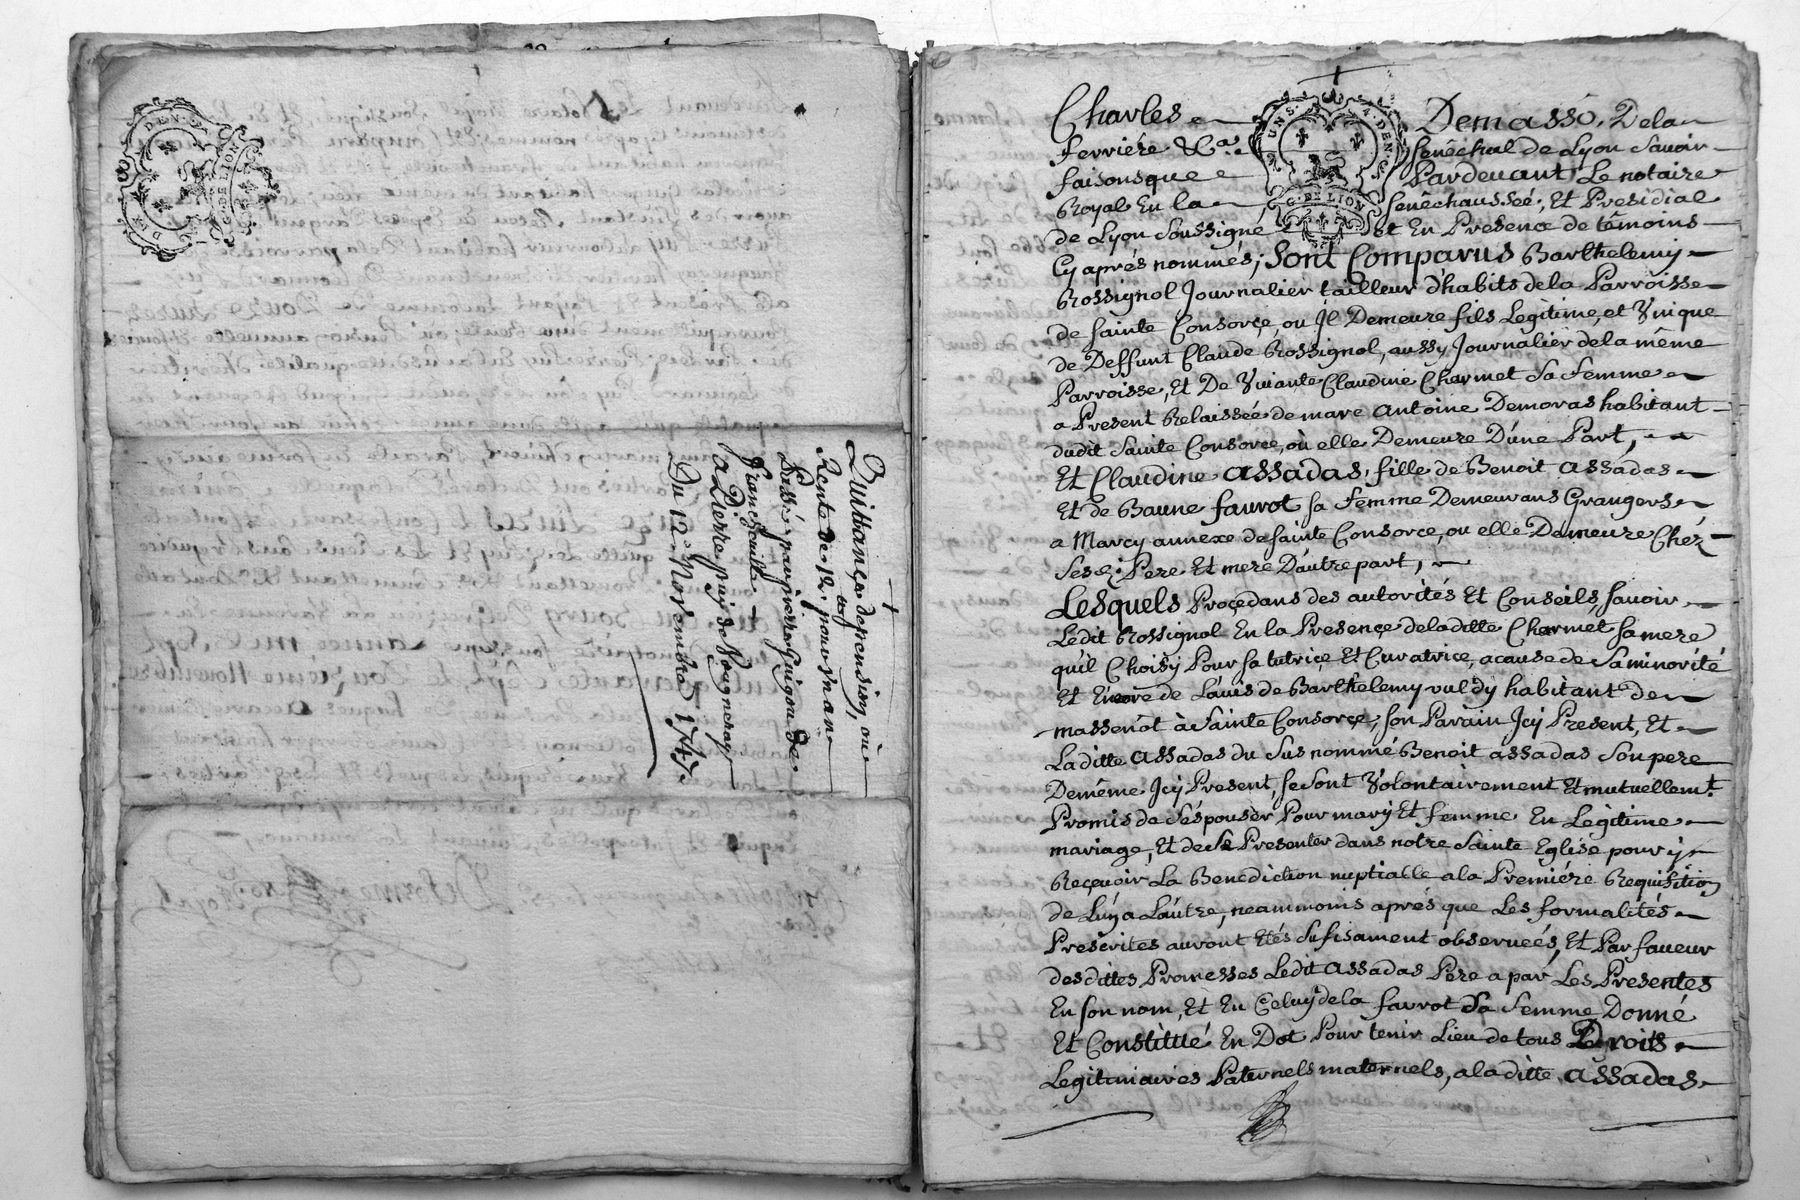 Quittançe de pension, où
Rente de 12.ᵗᵗ pour un an
Passé par pierre Guigou de
francheville
a Pierre puy de Vaugneray
Du 12.ᵉ Novembre 1747
DEN.
G. DE LION
Charles Demasso, Dela
ferriére &c.ᵃ Senéchal de Lyon Savoir
faisons que Pardevant Le notaire
Royal En la Senéchaussée, Et Presidial
de Lyon Soussigné et En Presence de témoins
Cy aprés nommés; Sont Comparus Barthelemy
Rossignol Journalier tailleur d'habits de la Parroisse
de Sainte Consorçe, ou Jl Demeure fils Legitime, et Vnique
de Deffunt Claude Rossignol, aussy Journalier de la même
Parroisse, Et De Viuante Claudine Charmet Sa femme
a Present Relaissée de marc Antoine Demoras habitant
dudit Sainte Consorce, où elle Demeure D'une Part,
Et Claudine Assadas, fille de Benoit Assadas
Et de Baune favrot sa femme Demeurans Grangers
a Marcy annexe de Sainte Consorce, ou elle Demeure Chéz
Sesd. Pere Et mere D'autre part,
Lesquels Proçedans des autorités Et Conseils, Savoir
Ledit Rossignol En la Presençe de laditte Charmet sa mere
qu'il Choisy Pour sa tutriçe Et Curatrice, a cause de Sa minorité
Et Encore de L'auis de Barthelemy vuldy habitant de
massenot à Sainte Consorçe, son Parain Jcy Present, Et
Laditte Assadas du Susnommé Benoit assadas Son pere
De même Jcy Present, se Sont Volontairement Et mutuellem.ᵗ
Promis de S'épousèr Pour mary Et femme En Legitime
mariage, Et de Se Presenter dans notre Sainte Eglise pour y
Reçevoir La Benediction nuptialle a la Premiére Requisition
de L'un a L'autre, neammoins aprés que Les formalités
Prescrites auront Etés Sufisament observeés, Et Par faveur
desdittes Promesses Ledit Assadas Pere a par Les Presentes
En son nom, Et En Celuy de la favrot Sa femme Donné
Et Constitué En Dot Pour tenir Lieu de tous Droits
Legitimaires Paternels maternels, a laditte Assadas